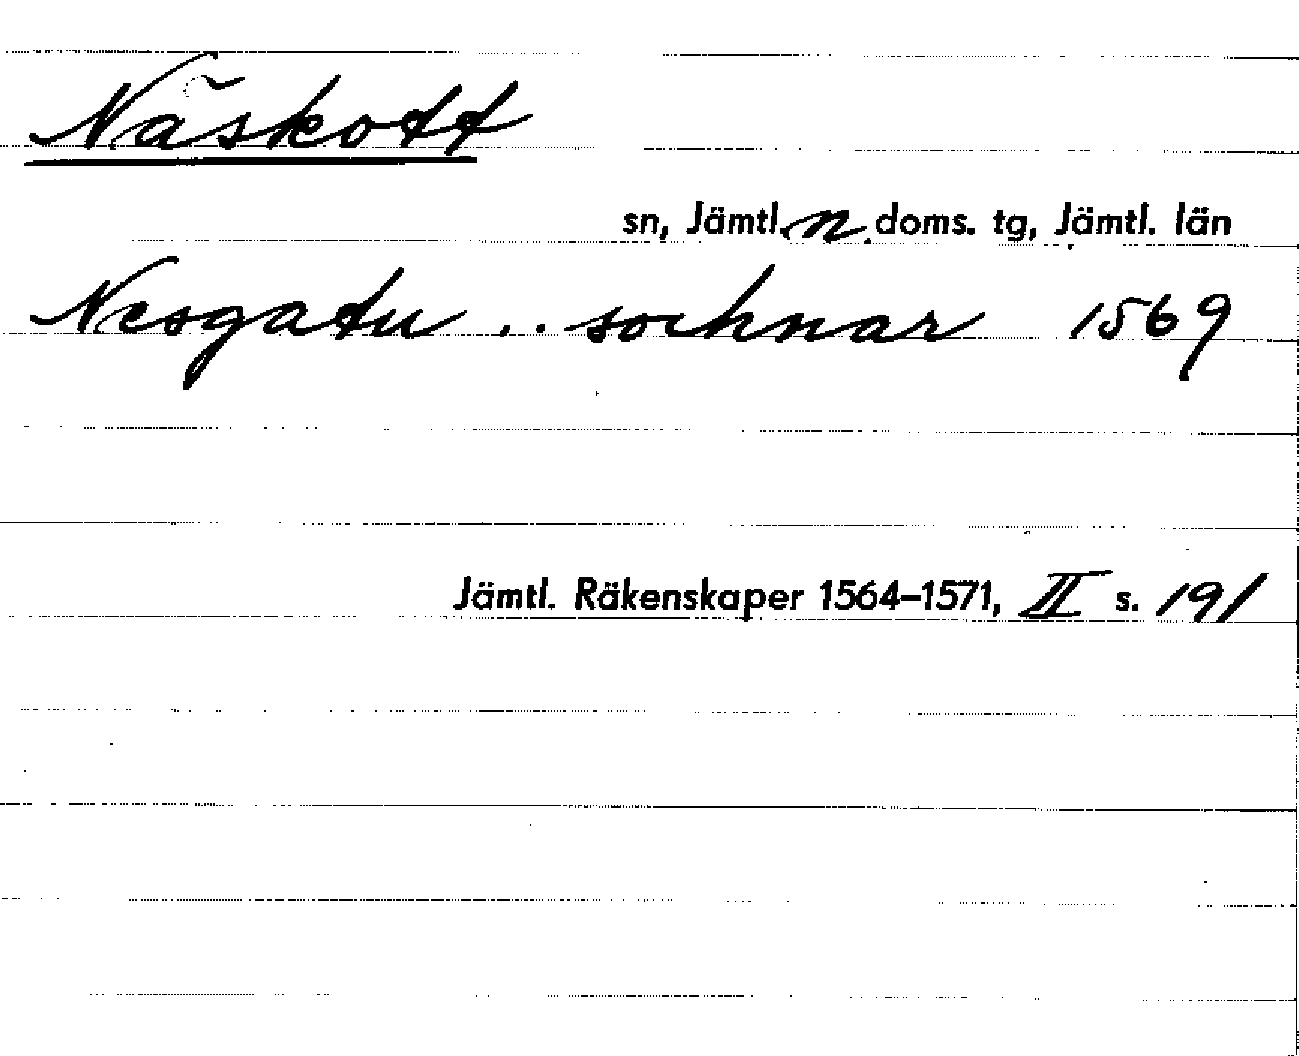 Näskott
sn, Jämtl. n doms. tg, Jämtl. län
Nesgatu .. sochnar 1569
Jämtl. Räkenskaper 1564–1571, II s. 191